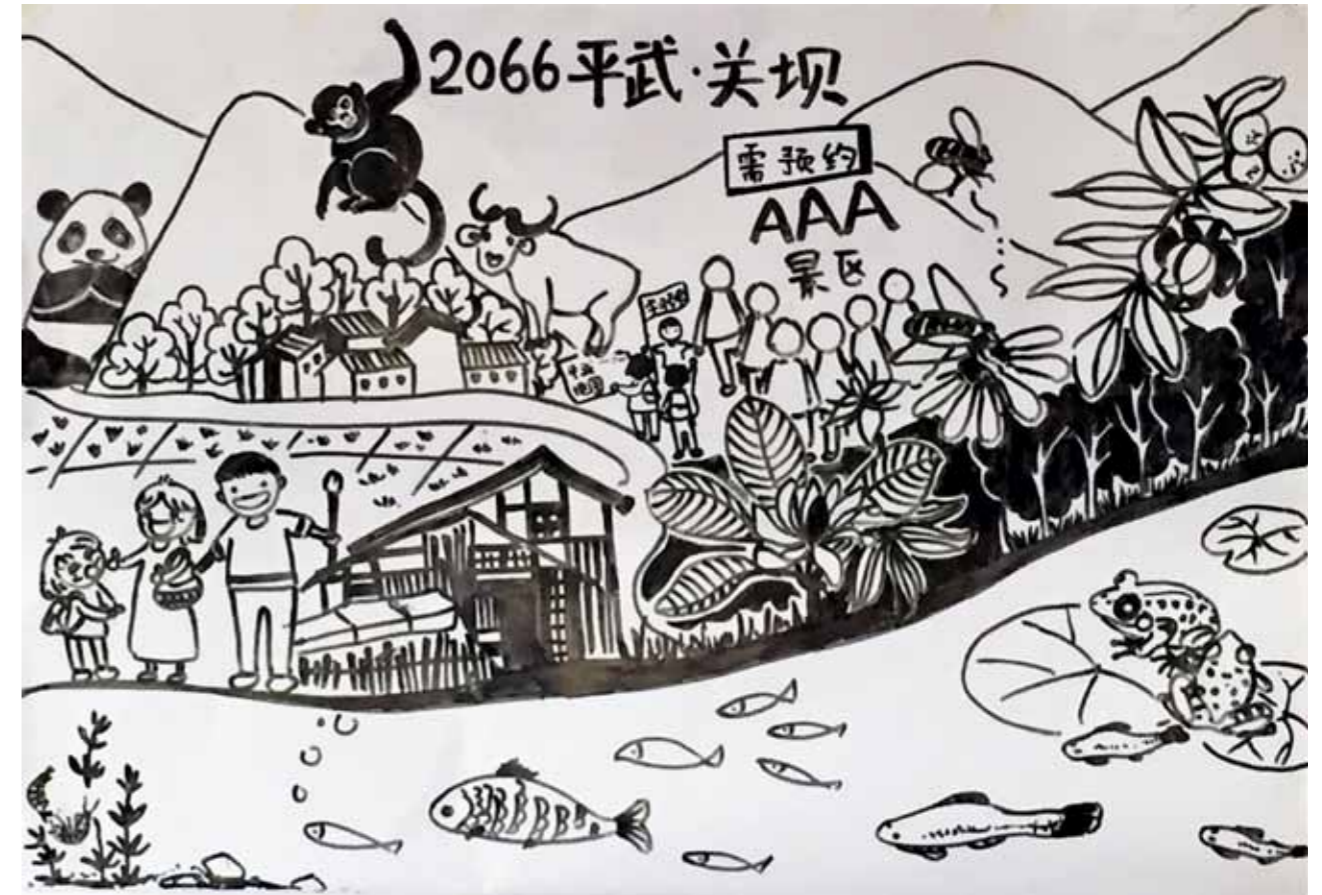 2066平武·关坝
需预约
AAA
景区
平武